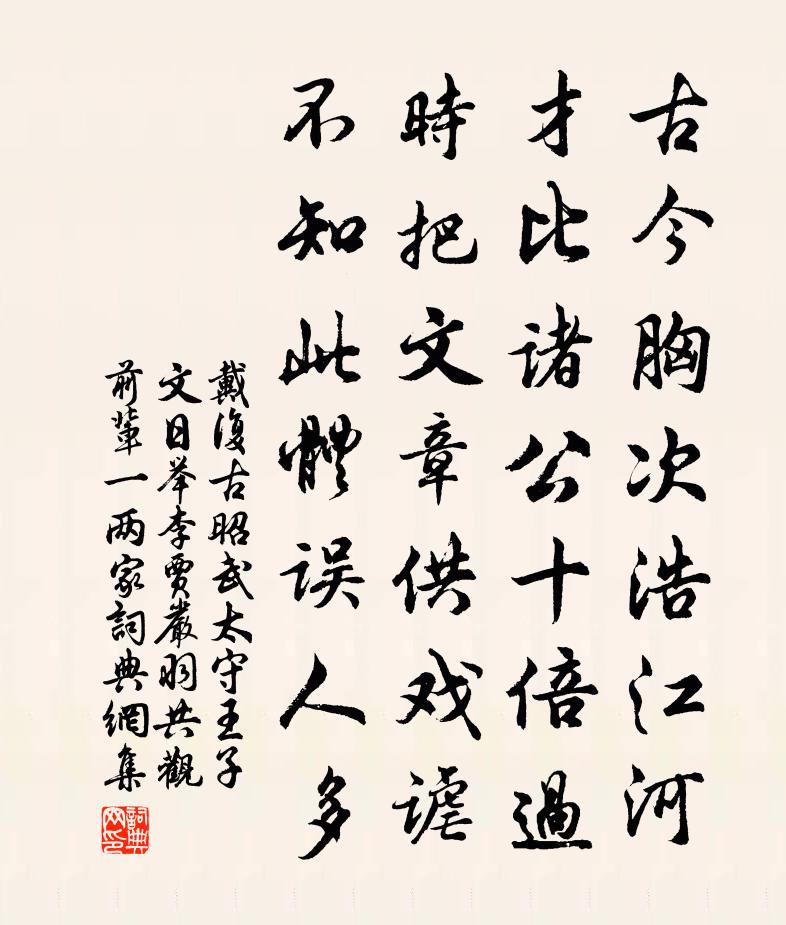 古今胸次浩江河
才比诸公十倍過
時把文章供戏謔
不知此體误人多
戴復古昭武太守王子
文日举李賈嚴羽共觀
前輩一两家詞典網集
詞典網印